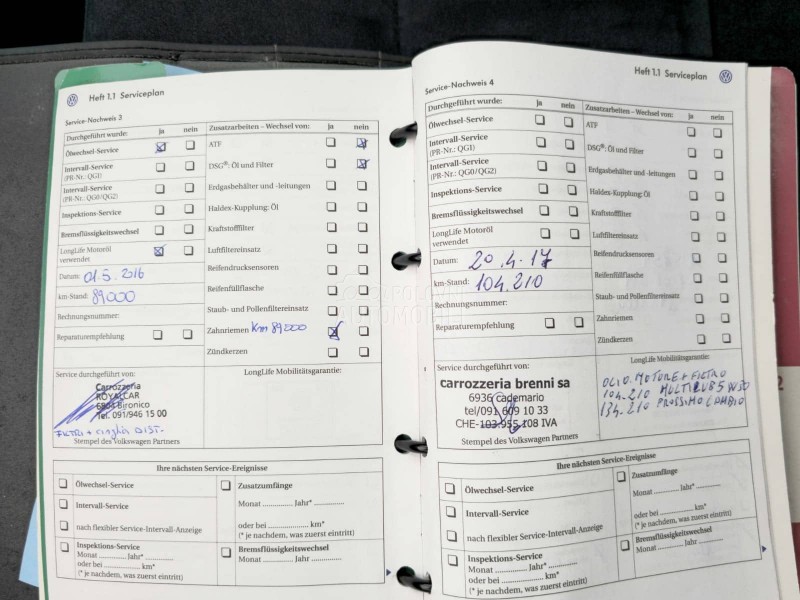 Heft 1.1 Serviceplan
Service-Nachweis 3
Durchgeführt wurde: ja nein
Ölwechsel-Service
Intervall-Service
(PR-Nr.: QG1)
Intervall-Service
(PR-Nr.: QG0/QG2)
Inspektions-Service
Bremsflüssigkeitswechsel
LongLife Motoröl
verwendet
Datum: 01.5.2016
km-Stand: 89000
Rechnungsnummer:
Reparaturempfehlung
Zusatzarbeiten – Wechsel von: ja nein
ATF
DSG®: Öl und Filter
Erdgasbehälter und -leitungen
Haldex-Kupplung: Öl
Kraftstofffilter
Luftfiltereinsatz
Reifendrucksensoren
Reifenfüllflasche
Staub- und Pollenfiltereinsatz
Zahnriemen Km 89000
Zündkerzen
Service durchgeführt von:
Carrozzeria
ROYALCAR
6804 Bironico
Tel. 091/946 15 00
FILTRI + cinghia DIST.
Stempel des Volkswagen Partners
LongLife Mobilitätsgarantie:
Ihre nächsten Service-Ereignisse
Ölwechsel-Service
Intervall-Service
nach flexibler Service-Intervall-Anzeige
Inspektions-Service
Monat ............ Jahr* ............
oder bei .................. km*
(* je nachdem, was zuerst eintritt)
Zusatzumfänge
Monat ............ Jahr* ............
oder bei .................. km*
(* je nachdem, was zuerst eintritt)
Bremsflüssigkeitswechsel
Monat ............ Jahr ............
Heft 1.1 Serviceplan
Service-Nachweis 4
Durchgeführt wurde: ja nein
Ölwechsel-Service
Intervall-Service
(PR-Nr.: QG1)
Intervall-Service
(PR-Nr.: QG0/QG2)
Inspektions-Service
Bremsflüssigkeitswechsel
LongLife Motoröl
verwendet
Datum: 20.4.17
km-Stand: 104.210
Rechnungsnummer:
Reparaturempfehlung
Zusatzarbeiten – Wechsel von: ja nein
ATF
DSG®: Öl und Filter
Erdgasbehälter und -leitungen
Haldex-Kupplung: Öl
Kraftstofffilter
Luftfiltereinsatz
Reifendrucksensoren
Reifenfüllflasche
Staub- und Pollenfiltereinsatz
Zahnriemen
Zündkerzen
Service durchgeführt von:
carrozzeria brenni sa
6936 cademario
tel/091 609 10 33
CHE-103.955.108 IVA
Stempel des Volkswagen Partners
LongLife Mobilitätsgarantie:
OLIO MOTORE + FILTRO
104.210 MULTILUB 5W30
134.210 PROSSIMO CAMBIO
Ihre nächsten Service-Ereignisse
Ölwechsel-Service
Intervall-Service
nach flexibler Service-Intervall-Anzeige
Inspektions-Service
Monat ............ Jahr* ............
oder bei .................. km*
(* je nachdem, was zuerst eintritt)
Zusatzumfänge
Monat ............ Jahr* ............
oder bei .................. km*
(* je nachdem, was zuerst eintritt)
Bremsflüssigkeitswechsel
Monat ............ Jahr ............